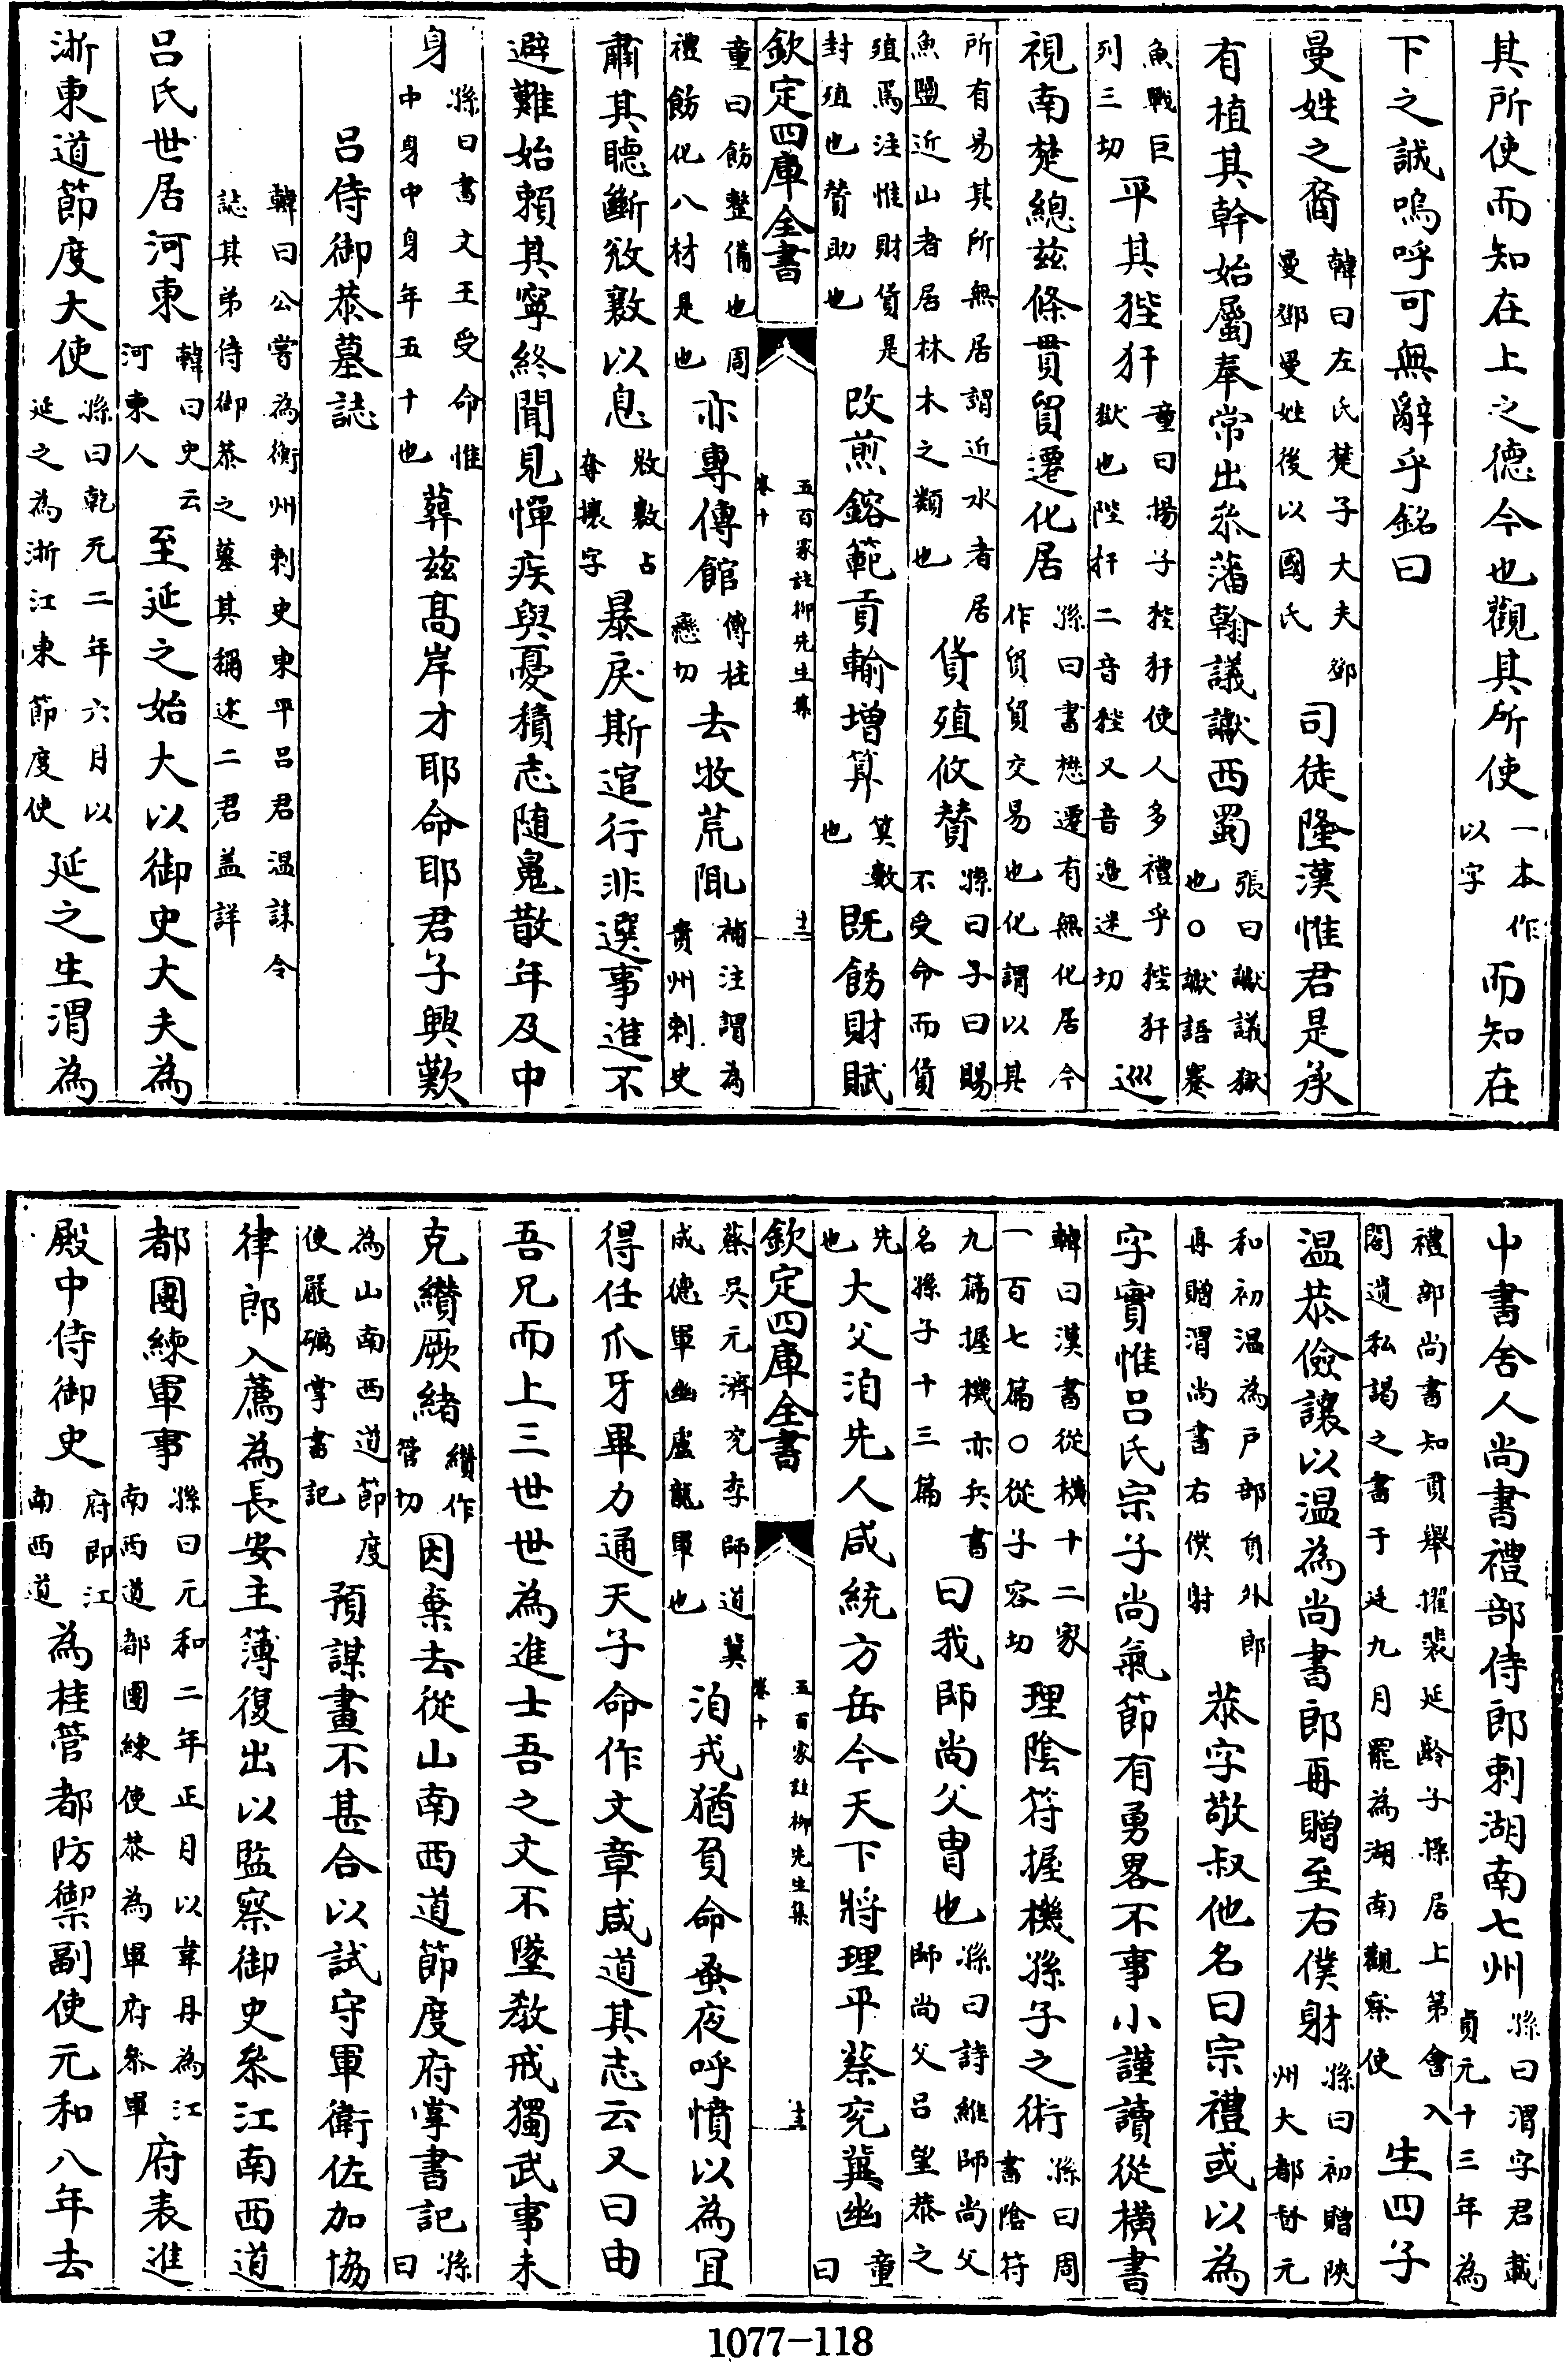 其所使而知在上之德今也觀其所使一本作以字而知在
下之誠嗚呼可無辭乎銘曰
曼姓之裔韓曰左氏楚子大夫鄧曼鄧曼姓後以國氏司徒隆漢惟君是承
有植其幹始屬奉常出叅藩翰議讞西蜀張曰讞議獄也○讞語蹇
魚戰巨列三切平其狴犴童曰揚子狴犴使人多禮乎狴犴獄也陛犴二音狴又音邊迷切巡
視南楚總兹條貫貿遷化居孫曰書懋遷有無化居今作貿貿交易也化謂以其
所有易其所無居謂近水者居魚鹽近山者居林木之類也貨殖攸贊孫曰子曰賜不受命而貨
殖焉注惟財貨是封殖也贊助也改煎鎔範貢輸増算筭數也既飭財賦
欽定四庫全書
五百家註柳先生集
卷十
十二
童曰飭整備也周禮飭化八材是也亦專傳館傳柱戀切去牧荒陬補注謂為貴州刺史
肅其聽斷敓敚以息敓敚占奪攘字暴戾斯逭行非選事進不
避難始賴其寧終聞見憚疾與憂積志随鬼散年及中
身孫曰書文王受命惟中身中身年五十也葬兹髙岸才耶命耶君子興歎
呂侍御恭墓誌
韓曰公嘗為衡州刺史東平呂君溫誄今誌其弟侍御恭之墓其稱述二君盖詳
呂氏世居河東韓曰史云河東人至延之始大以御史大夫為
浙東道節度大使孫曰乾元二年六月以延之為浙江東節度使延之生渭為
中書舍人尚書禮部侍郎刺湖南七州孫曰渭字君載貞元十三年為
禮部尚書知貢舉擢裴延齡子操居上第會入閣遺私謁之書于廷九月罷為湖南觀察使生四子
温恭儉讓以温為尚書郎再贈至右僕射孫曰初贈陜州大都督元
和初温為戸部員外郎再贈渭尚書右僕射恭字敬叔他名曰宗禮或以為
字實惟呂氏宗子尚氣節有勇畧不事小謹讀從横書
韓曰漢書從横十二家一百七篇○從子容切理陰符握機孫子之術孫曰周書陰符
九篇握機亦兵書名孫子十三篇曰我師尚父胄也孫曰詩維師尚父師尚父呂望恭之
先也大父洎先人咸統方岳今天下將理平蔡兖冀幽童曰
欽定四庫全書
五百家註柳先生集
卷十
十三
蔡吳元濟兖李師道冀成德軍幽盧龍軍也洎戎猶負命蚤夜呼憤以為冝
得任爪牙畢力通天子命作文章咸道其志云又曰由
吾兄而上三世世為進士吾之文不墜教戒獨武事未
克纘厥緒纘作管切因棄去從山南西道節度府掌書記孫曰
為山南西道節度使嚴礪掌書記預謀畫不甚合以試守軍衛佐加協
律郎入薦為長安主簿復出以監察御史叅江南西道
都團練軍事孫曰元和二年正月以韋丹為江南西道都團練使恭為軍府叅軍府表進
殿中侍御史府即江南西道為桂管都防禦副使元和八年去
1077-118